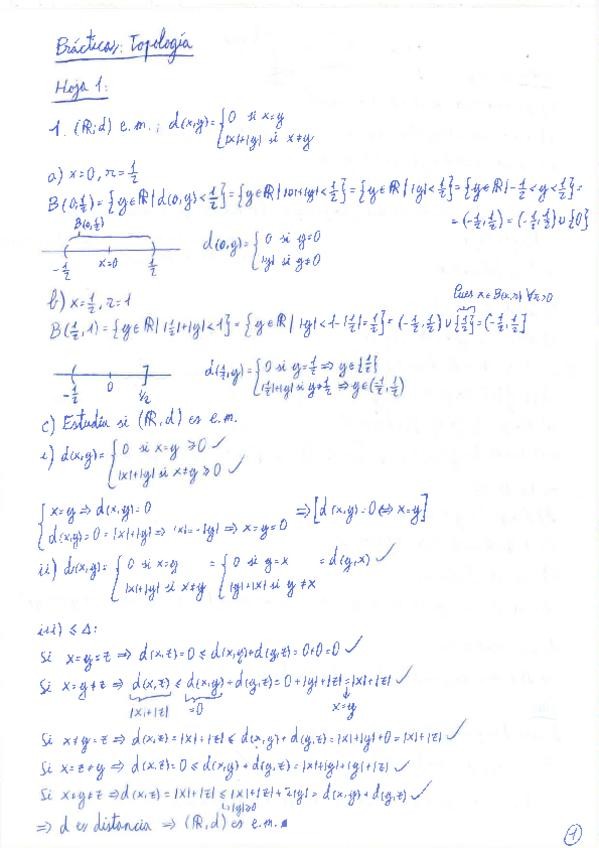 Prácticas: Topología
Hoja 1:
1. (ℝ,d) e.m.; d(x,y)={0 si x=y
|x|+|y| si x≠y
a) x=0, r=1/2
B(0,1/2)={y∈ℝ| d(0,y)<1/2}={y∈ℝ| |0|+|y|<1/2}={y∈ℝ| |y|<1/2}={y∈ℝ|-1/2<y<1/2}=
=(-1/2,1/2)=(-1/2,1/2)∪{0}
B(0,1/2)
-1/2 x=0 1/2
d(0,y)={0 si y=0
|y| si y≠0
b) x=1/2, r=1
Pues x∈B(x,r) ∀r>0
B(1/2,1)={y∈ℝ| |1/2|+|y|<1}={y∈ℝ| |y|<1-|1/2|=1/2}=(-1/2,1/2)∪{1/2}=(-1/2,1/2]
-1/2 0 1/2
d(1/2,y)={0 si y=1/2 ⇒ y∈{1/2}
|1/2|+|y| si y≠1/2 ⇒ y∈(-1/2,1/2)
c) Estudia si (ℝ,d) es e.m.
i) d(x,y)={0 si x=y ≥0 ✓
|x|+|y| si x≠y ≥0 ✓
{x=y ⇒ d(x,y)=0
d(x,y)=0=|x|+|y| ⇒ |x|=-|y| ⇒ x=y=0 ⇒[d(x,y)=0⇔x=y]
ii) d(x,y)={0 si x=y = {0 si y=x = d(y,x) ✓
|x|+|y| si x≠y |y|+|x| si y≠x
iii) ≤Δ:
Si x=y=z ⇒ d(x,z)=0≤d(x,y)+d(y,z)=0+0=0 ✓
Si x=y≠z ⇒ d(x,z)≤d(x,y)+d(y,z)=0+|y|+|z|=|x|+|z| ✓
|x|+|z| =0 x=y
Si x≠y=z ⇒ d(x,z)=|x|+|z|≤d(x,y)+d(y,z)=|x|+|y|+0=|x|+|z| ✓
Si x=z≠y ⇒ d(x,z)=0≤d(x,y)+d(y,z)=|x|+|y|+|y|+|z| ✓
Si x≠y≠z ⇒ d(x,z)=|x|+|z|≤|x|+|z|+2|y|=d(x,y)+d(y,z) ✓
|y|≥0
⇒ d es distancia ⇒ (ℝ,d) es e.m. ■
1